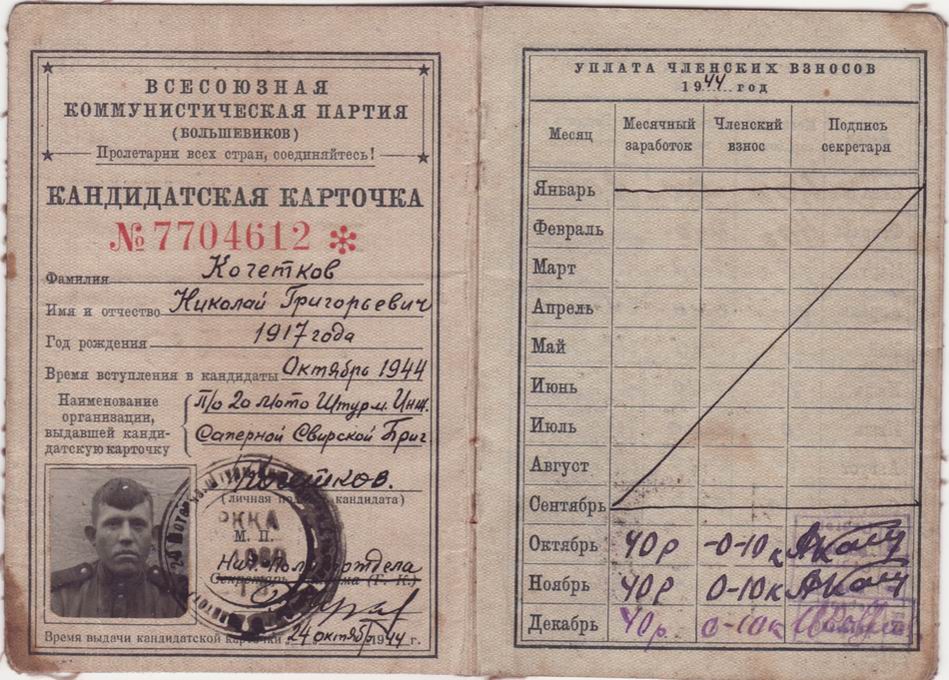 ВСЕСОЮЗНАЯ
КОММУНИСТИЧЕСКАЯ ПАРТИЯ
(БОЛЬШЕВИКОВ)
Пролетарии всех стран, соединяйтесь!
КАНДИДАТСКАЯ КАРТОЧКА
№ 7704612
Фамилия Кочетков
Имя и отчество Николай Григорьевич
Год рождения 1917 года
Время вступления в кандидаты Октябрь 1944
Наименование организации, выдавшей канди-датскую карточку
П/о 20 Мото Штурм. Инж.
Саперной Свирской Бриг
(личная подпись кандидата)
РККА
М. П.
Нач. Политотдела
Секретарь (Г. К.)
Время выдачи кандидатской карточки 24 октября 1944 г.
УПЛАТА ЧЛЕНСКИХ ВЗНОСОВ
1944 год
Месяц Месячный заработок Членский взнос Подпись секретаря
Январь
Февраль
Март
Апрель
Май
Июнь
Июль
Август
Сентябрь
Октябрь 40р -0-10к
Ноябрь 40р 0-10к
Декабрь 40р. 0-10к